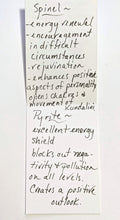 Spinel ~
- energy renewal
- encouragement
in difficult
circumstances
- rejuvination
- enhances positive
aspects of personality
opens chakras &
movement of Kundalini
Pyrite ~
- excellent energy
shield
blocks out nega-
tivity & pollution
on all levels.
Creates a positive
outlook.